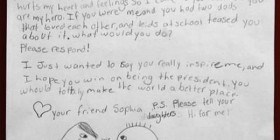 hurts my heart and feelings, so I came to you
are my hero. If you were me and you had two dads
that loved each other, and kids at school teased you
about it, what would you do?
Please respond!
I just wanted to say you really inspire me, and
I hope you win on being the president. You
would totally make the world a better place.
your friend Sophia
P.S. Please tell your
daughters Hi for me!